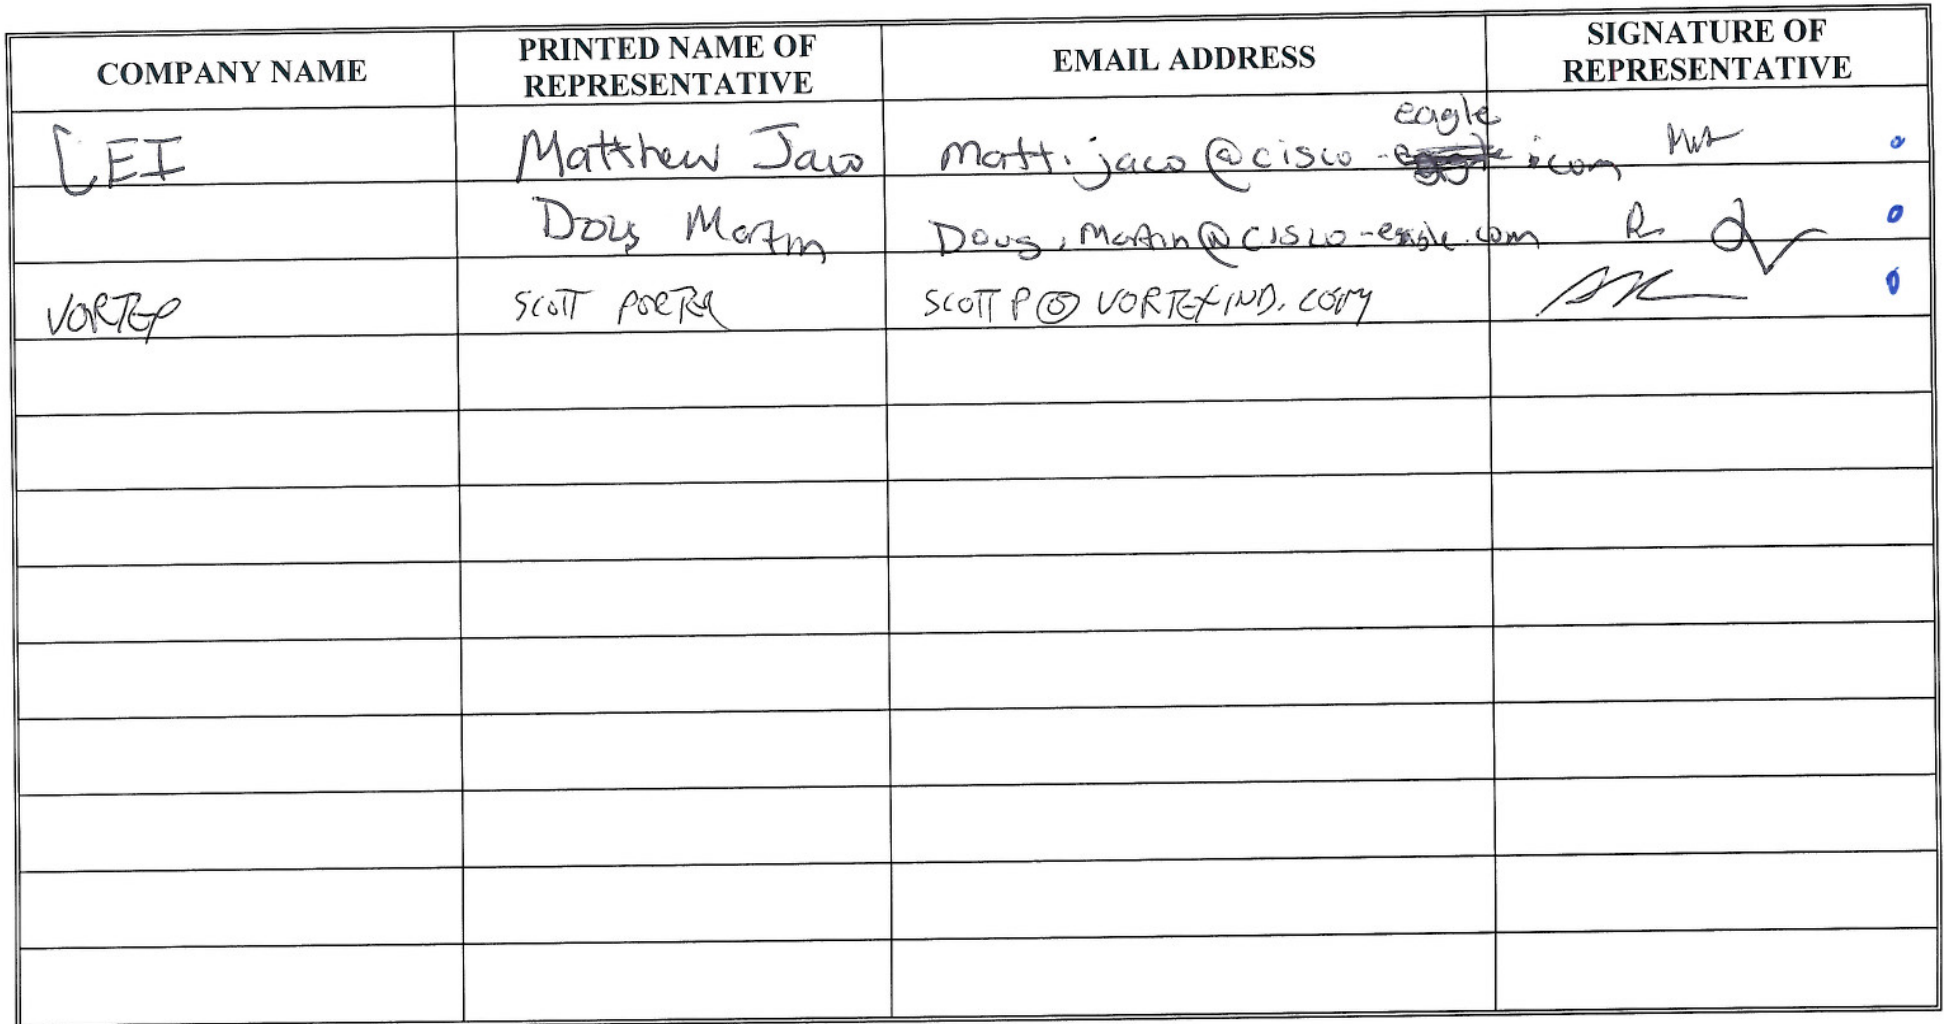 COMPANY NAME
PRINTED NAME OF
REPRESENTATIVE
EMAIL ADDRESS
SIGNATURE OF
REPRESENTATIVE
CEI
Matthew Jaco
eagle
matt.jaco@cisco- .com
Doug Martin
Doug.Martin@cisco-eagle.com
VORTEX
SCOTT PORTER
SCOTTP@VORTEXIND.COM